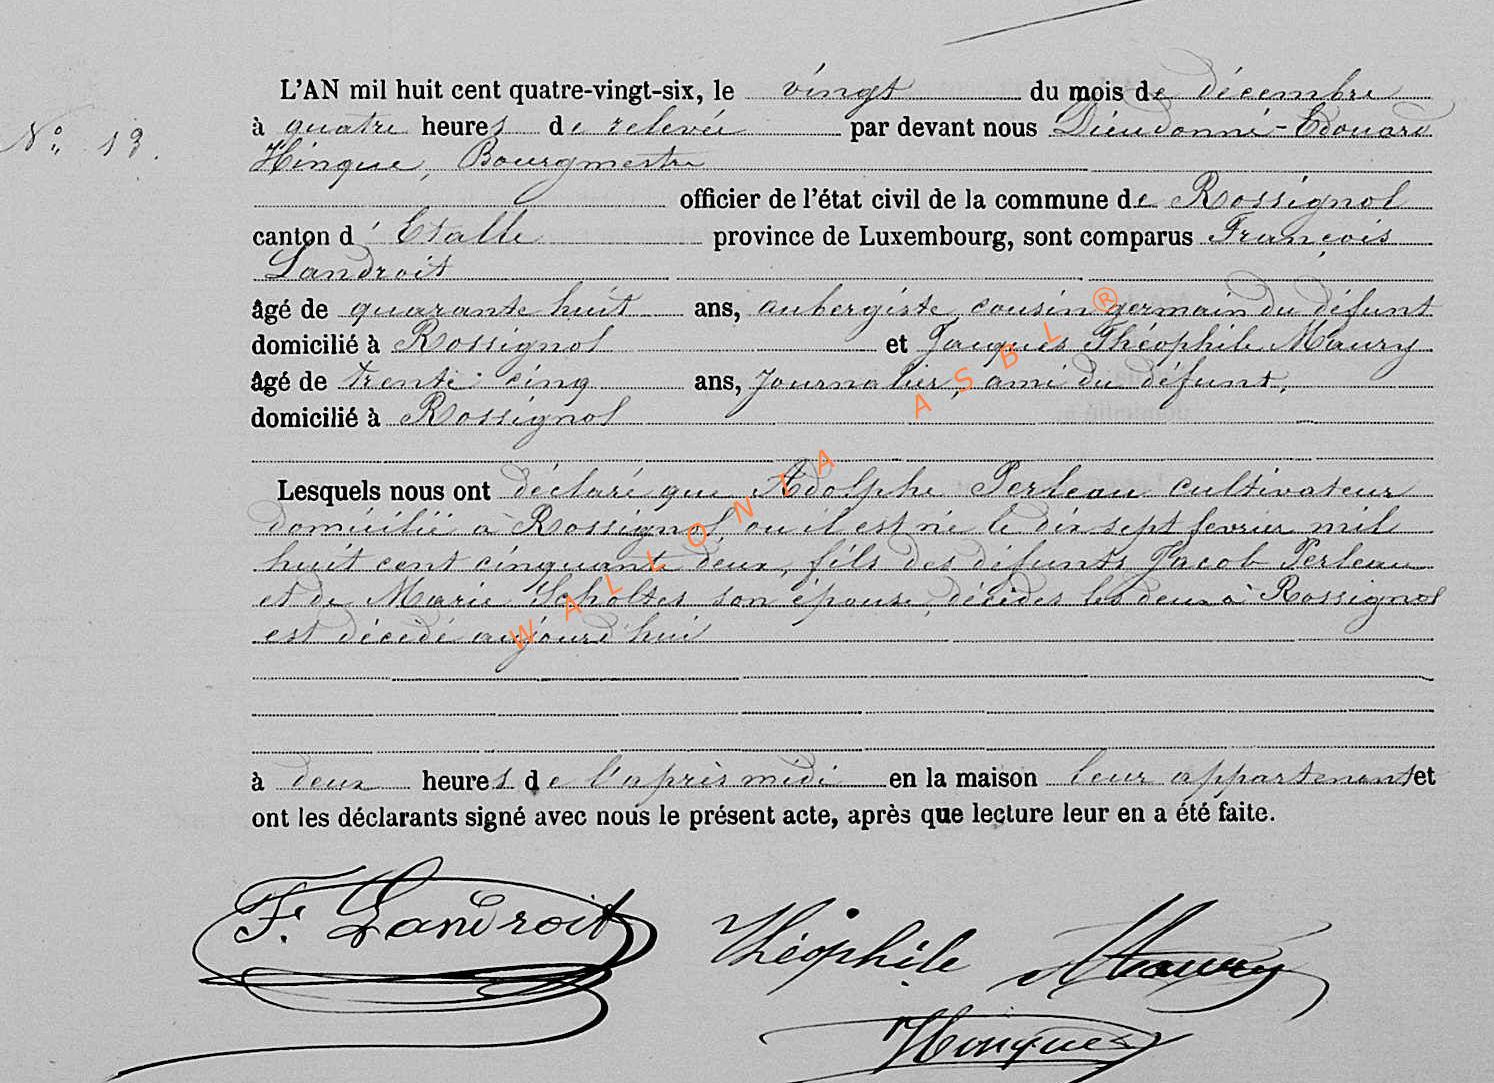 L'AN mil huit cent quatre-vingt-six, le vingt du mois de décembre
N° 13.
à quatre heures de relevée par devant nous Dieudonné-Edouard
Hinque, Bourgmestre
officier de l'état civil de la commune de Rossignol
canton d'Etalle province de Luxembourg, sont comparus François
Landroit
âgé de quarante huit ans, aubergiste, cousin germain du défunt
domicilié à Rossignol et Jacques Théophile Maury
âgé de trente-cinq ans, Journalier, ami du défunt,
domicilié à Rossignol
Lesquels nous ont déclaré que Adolphe Perleau cultivateur
domicilié à Rossignol ou il est né le dix sept fevrier mil
huit cent cinquante deux, fils des défunts Jacob Perleau
et de Marie Scholtes son épouse, décédés les deux à Rossignol
est décédé aujourd'hui
à deux heures de l'après midi en la maison leur appartenant et
ont les déclarants signé avec nous le présent acte, après que lecture leur en a été faite.
F. Landroit Théophile Maury
Hinque
WALLONIA ASBL ®